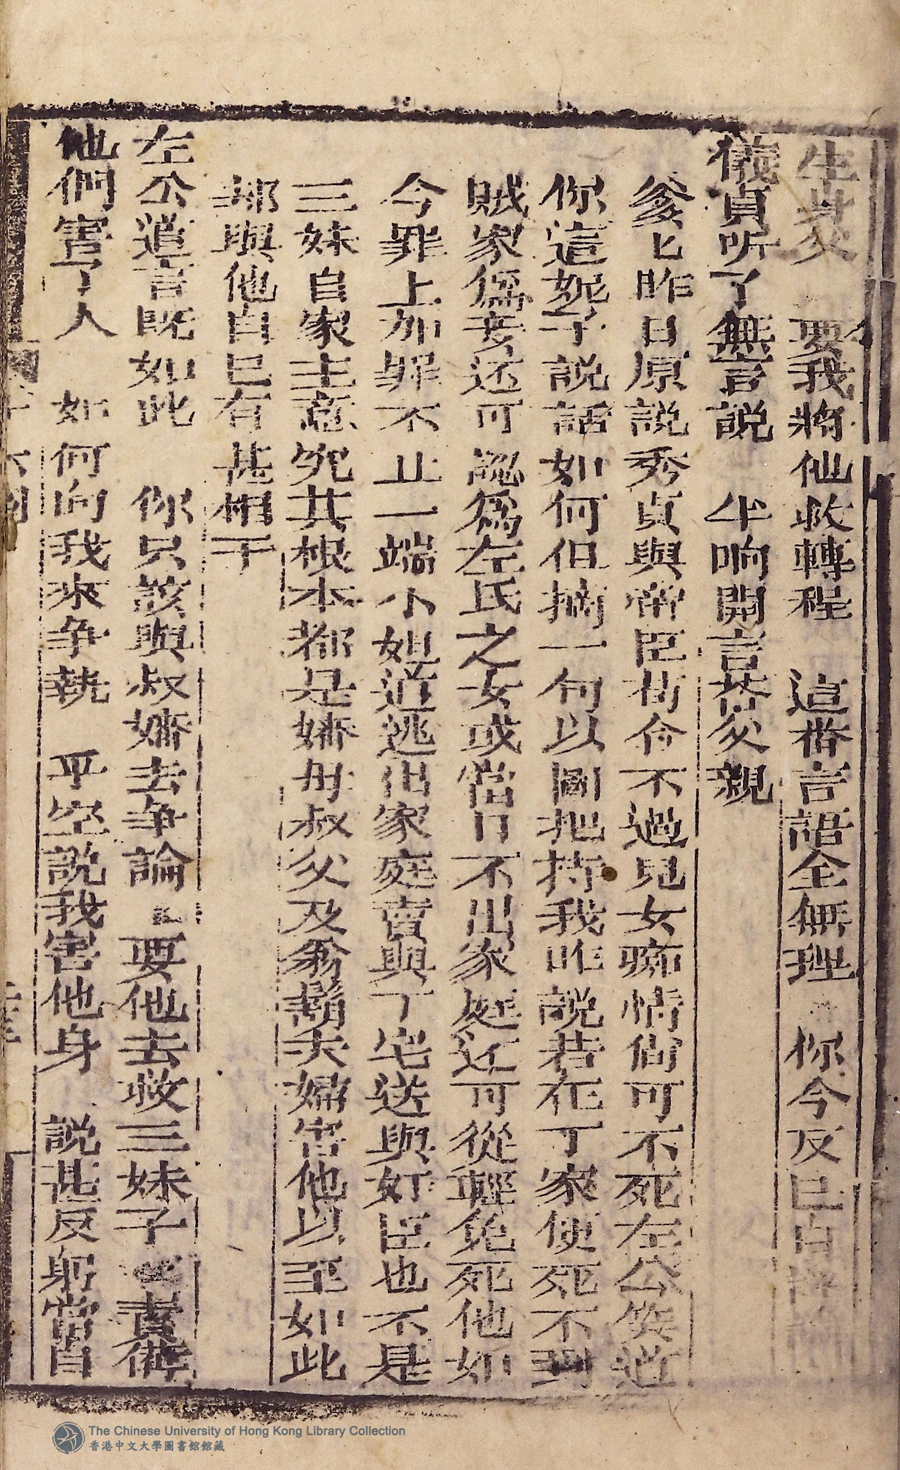 生身父　要我將他救轉程　這番言語全無理　你今反已自
儀貞听了無言說　半响開言荅父親
爹匕昨日原說秀貞與帝臣苟合不過兒女痴情尙可不死左公笑道
你這妮子說話如何但摘一句以圖把持我昨說若在丁家便死不到
賊家爲妾还可認爲左氏之女或當日不出家庭还可從輕免死他如
今罪上加罪不止一端小姐道逃出家庭賣與丁宅送與奸臣也不是
三妹自家主意究其根本都是嬸母叔父及翁鬍夫婦害他以至如此
却與他自己有甚相干
左公道言既如此　你只該與叔嬸去爭論　要他去救三妹子　責備
他們害了人　如何向我來争執　平空說我害他身　說甚反躬當自
The Chinese University of Hong Kong Library Collection
香港中文大學圖書館館藏